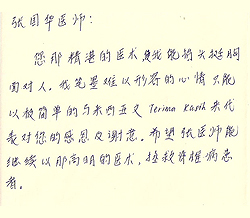 张国华医师：
您那精湛的医术，使我能够抬头挺胸
面对人。我笔墨难以形容的心情只能
以极简单的马来西亚文 Terima Kasih 来代
表对您的感恩及谢意。希望张医师能
继续以那高明的医术，拯救脊椎病患
者。